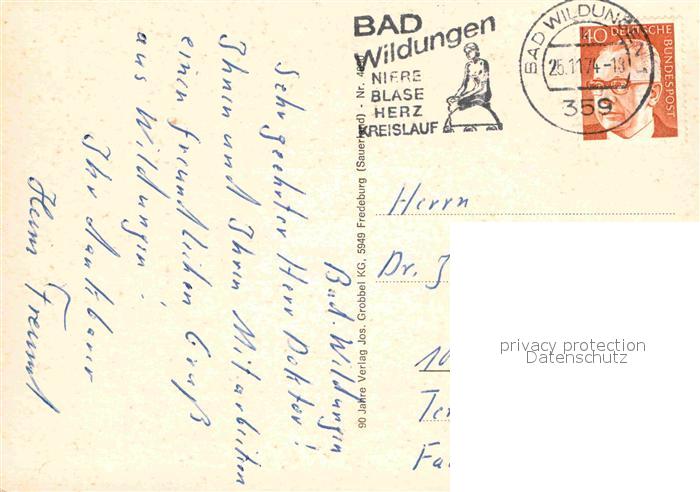 BAD
Wildungen
NIERE
BLASE
HERZ
KREISLAUF
BAD WILDUNGEN
25.11.74-18
359
40
DEUTSCHE
BUNDESPOST
Bad. Wildungen
Sehr geehrter Herr Doktor!
Ihnen und Ihren Mitarbeitern
einen freundlichen Gruß
aus Wildungen!
Ihr dankbarer
90 Jahre Verlag Jos. Grobbel KG, 5949 Fredeburg (Sauerland) - Nr.
Herrn
Dr. J
10
privacy protection
Datenschutz